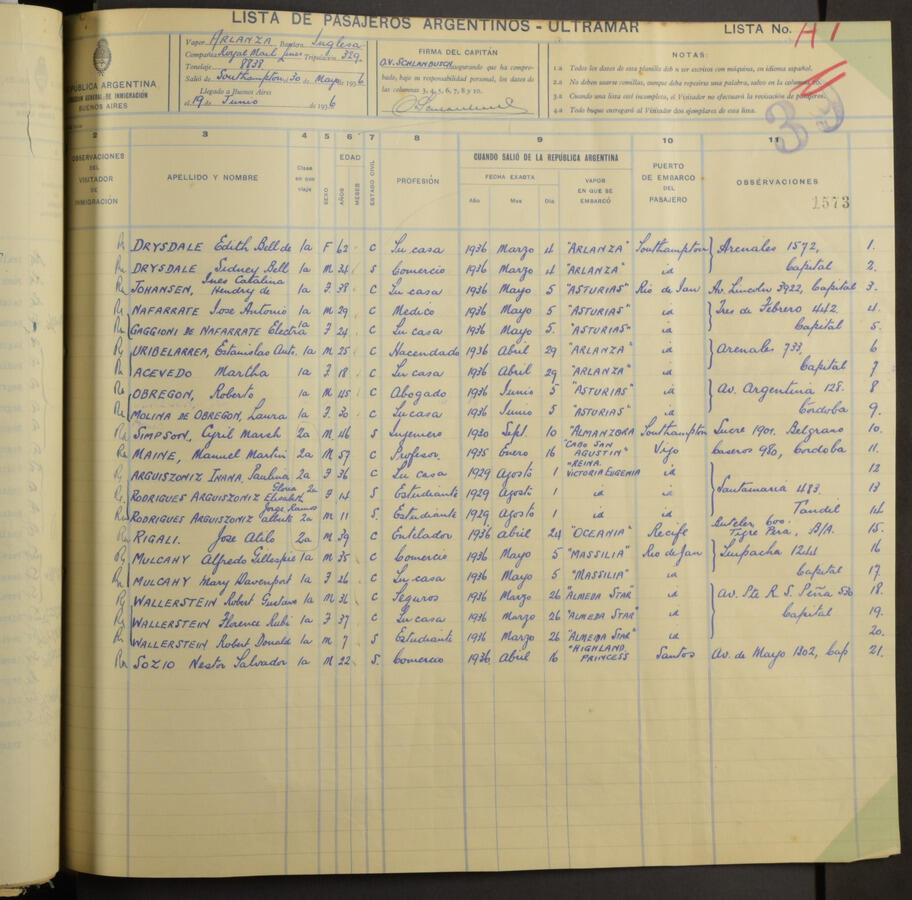 LISTA DE PASAJEROS ARGENTINOS - ULTRAMAR
LISTA No. A 1
REPÚBLICA ARGENTINA
DIRECCION GENERAL DE INMIGRACIÓN
BUENOS AIRES
Vapor ARLANZA Bandera Inglesa
Compañia Royal Mail Lines Tripulación 329
Tonelaje 8838
Salió de Southampton, 30 de Mayo de 1936
Llegado a Buenos Aires
el 19 de Junio de 1936
FIRMA DEL CAPITÁN
O.V. SCHLANBUSCH asegurando que ha comprobado, bajo su responsabilidad personal, los datos de las columnas 3, 4, 5, 6, 7, 8 y 10.
NOTAS:
1.a Todos los datos de esta planilla deben ser escritos con máquina, en idioma español.
2.a No deben usarse comillas, aunque deba repetirse una palabra, salvo en la columna 10.
3.a Cuando una lista esté incompleta, el Visitador no efectuará la revisación de pasajeros.
4.a Todo buque entregará al Visitador dos ejemplares de esta lista.
33
2 3 4 5 6 7 8 9 10 11
OBSERVACIONES DEL VISITADOR DE INMIGRACIÓN
APELLIDO Y NOMBRE
Clase en que viaja
SEXO
EDAD
AÑOS
MESES
ESTADO CIVIL
PROFESIÓN
CUANDO SALIÓ DE LA REPÚBLICA ARGENTINA
FECHA EXACTA
Año Mes Día
VAPOR EN QUE SE EMBARCÓ
PUERTO DE EMBARCO DEL PASAJERO
OBSERVACIONES
1573
DRYSDALE Edith Bell de 1a F 62 C Su casa 1936 Marzo 4 "ARLANZA" Southampton Arenales 1572, 1.
DRYSDALE Sidney Bell 1a M 34 S Comercio 1936 Marzo 4 "ARLANZA" id Capital 2.
JOHANSEN, Ines Catalina Hendry de 1a F 38 C Su casa 1936 Mayo 5 "ASTURIAS" Rio de Jan Av. Lincoln 3922, Capital 3.
NAFARRATE Jose Antonio 1a M 29 C Medico 1936 Mayo 5 "ASTURIAS" id Tres de Febrero 442. 4.
GAGGIONI DE NAFARRATE Electra 1a F 24 C Su casa 1936 Mayo 5 "ASTURIAS" id Capital 5.
URIBELARREA, Estanislao Anto. 1a M 25 C Hacendado 1936 Abril 29 "ARLANZA" id Arenales 733, 6
ACEVEDO Martha 1a F 18 C Su casa 1936 Abril 29 "ARLANZA" id Capital 7
OBREGON, Roberto 1a M 45 C Abogado 1936 Junio 5 "ASTURIAS" id Av. Argentina 128. 8
MOLINA DE OBREGON, Laura 1a F 30 C Su casa 1936 Junio 5 "ASTURIAS" id Cordoba 9.
SIMPSON, Cyril March 2a M 46 S Ingeniero 1930 Sept. 10 "ALMANZORA" Southampton Sucre 1901. Belgrano 10.
MAINE, Manuel Martin 2a M 57 C Profesor 1935 Enero 16 "CABO SAN AGUSTIN" Vigo Caseros 980, Cordoba 11.
ARGUISZONIZ Inana, Paulina 2a F 36 C Su casa 1929 Agosto 1 "REINA VICTORIA EUGENIA" id 12
RODRIGUES ARGUISZONIZ Gloria Elisabeth 2a F 14 S Estudiante 1929 Agosto 1 id id Santamaria 483. 13
RODRIGUES ARGUISZONIZ Jorge Ramos Alberto 2a M 11 S. Estudiante 1929 Agosto 1 id id Tandil 14
RIGALI. Jose Atilo 2a M 39 C Entelador 1936 Abril 24 "OCEANIA" Recife 600. Tigre B/A. 15.
MULCAHY Alfredo Gillespie 1a M 35 C Comercio 1936 Mayo 5 "MASSILIA" Rio de Jan Suipacha 1244 16
MULCAHY Mary Davenport 1a F 26 C Su casa 1936 Mayo 5 "MASSILIA" id Capital 17.
WALLERSTEIN Robert Gustavo 1a M 36 C Seguros 1936 Marzo 26 "ALMEDA STAR" id Av. Pte R. S. Peña 530 18.
WALLERSTEIN Florence Rubi 1a F 37 C Su casa 1936 Marzo 26 "ALMEDA STAR" id Capital 19.
WALLERSTEIN Robert Donald 1a M 7 S Estudiante 1936 Marzo 26 "ALMEDA STAR" id 20.
SOZIO Nestor Salvador 1a M 22 S. Comercio 1936 Abril 16 "HIGHLAND PRINCESS Santos Av. de Mayo 1302, Cap 21.